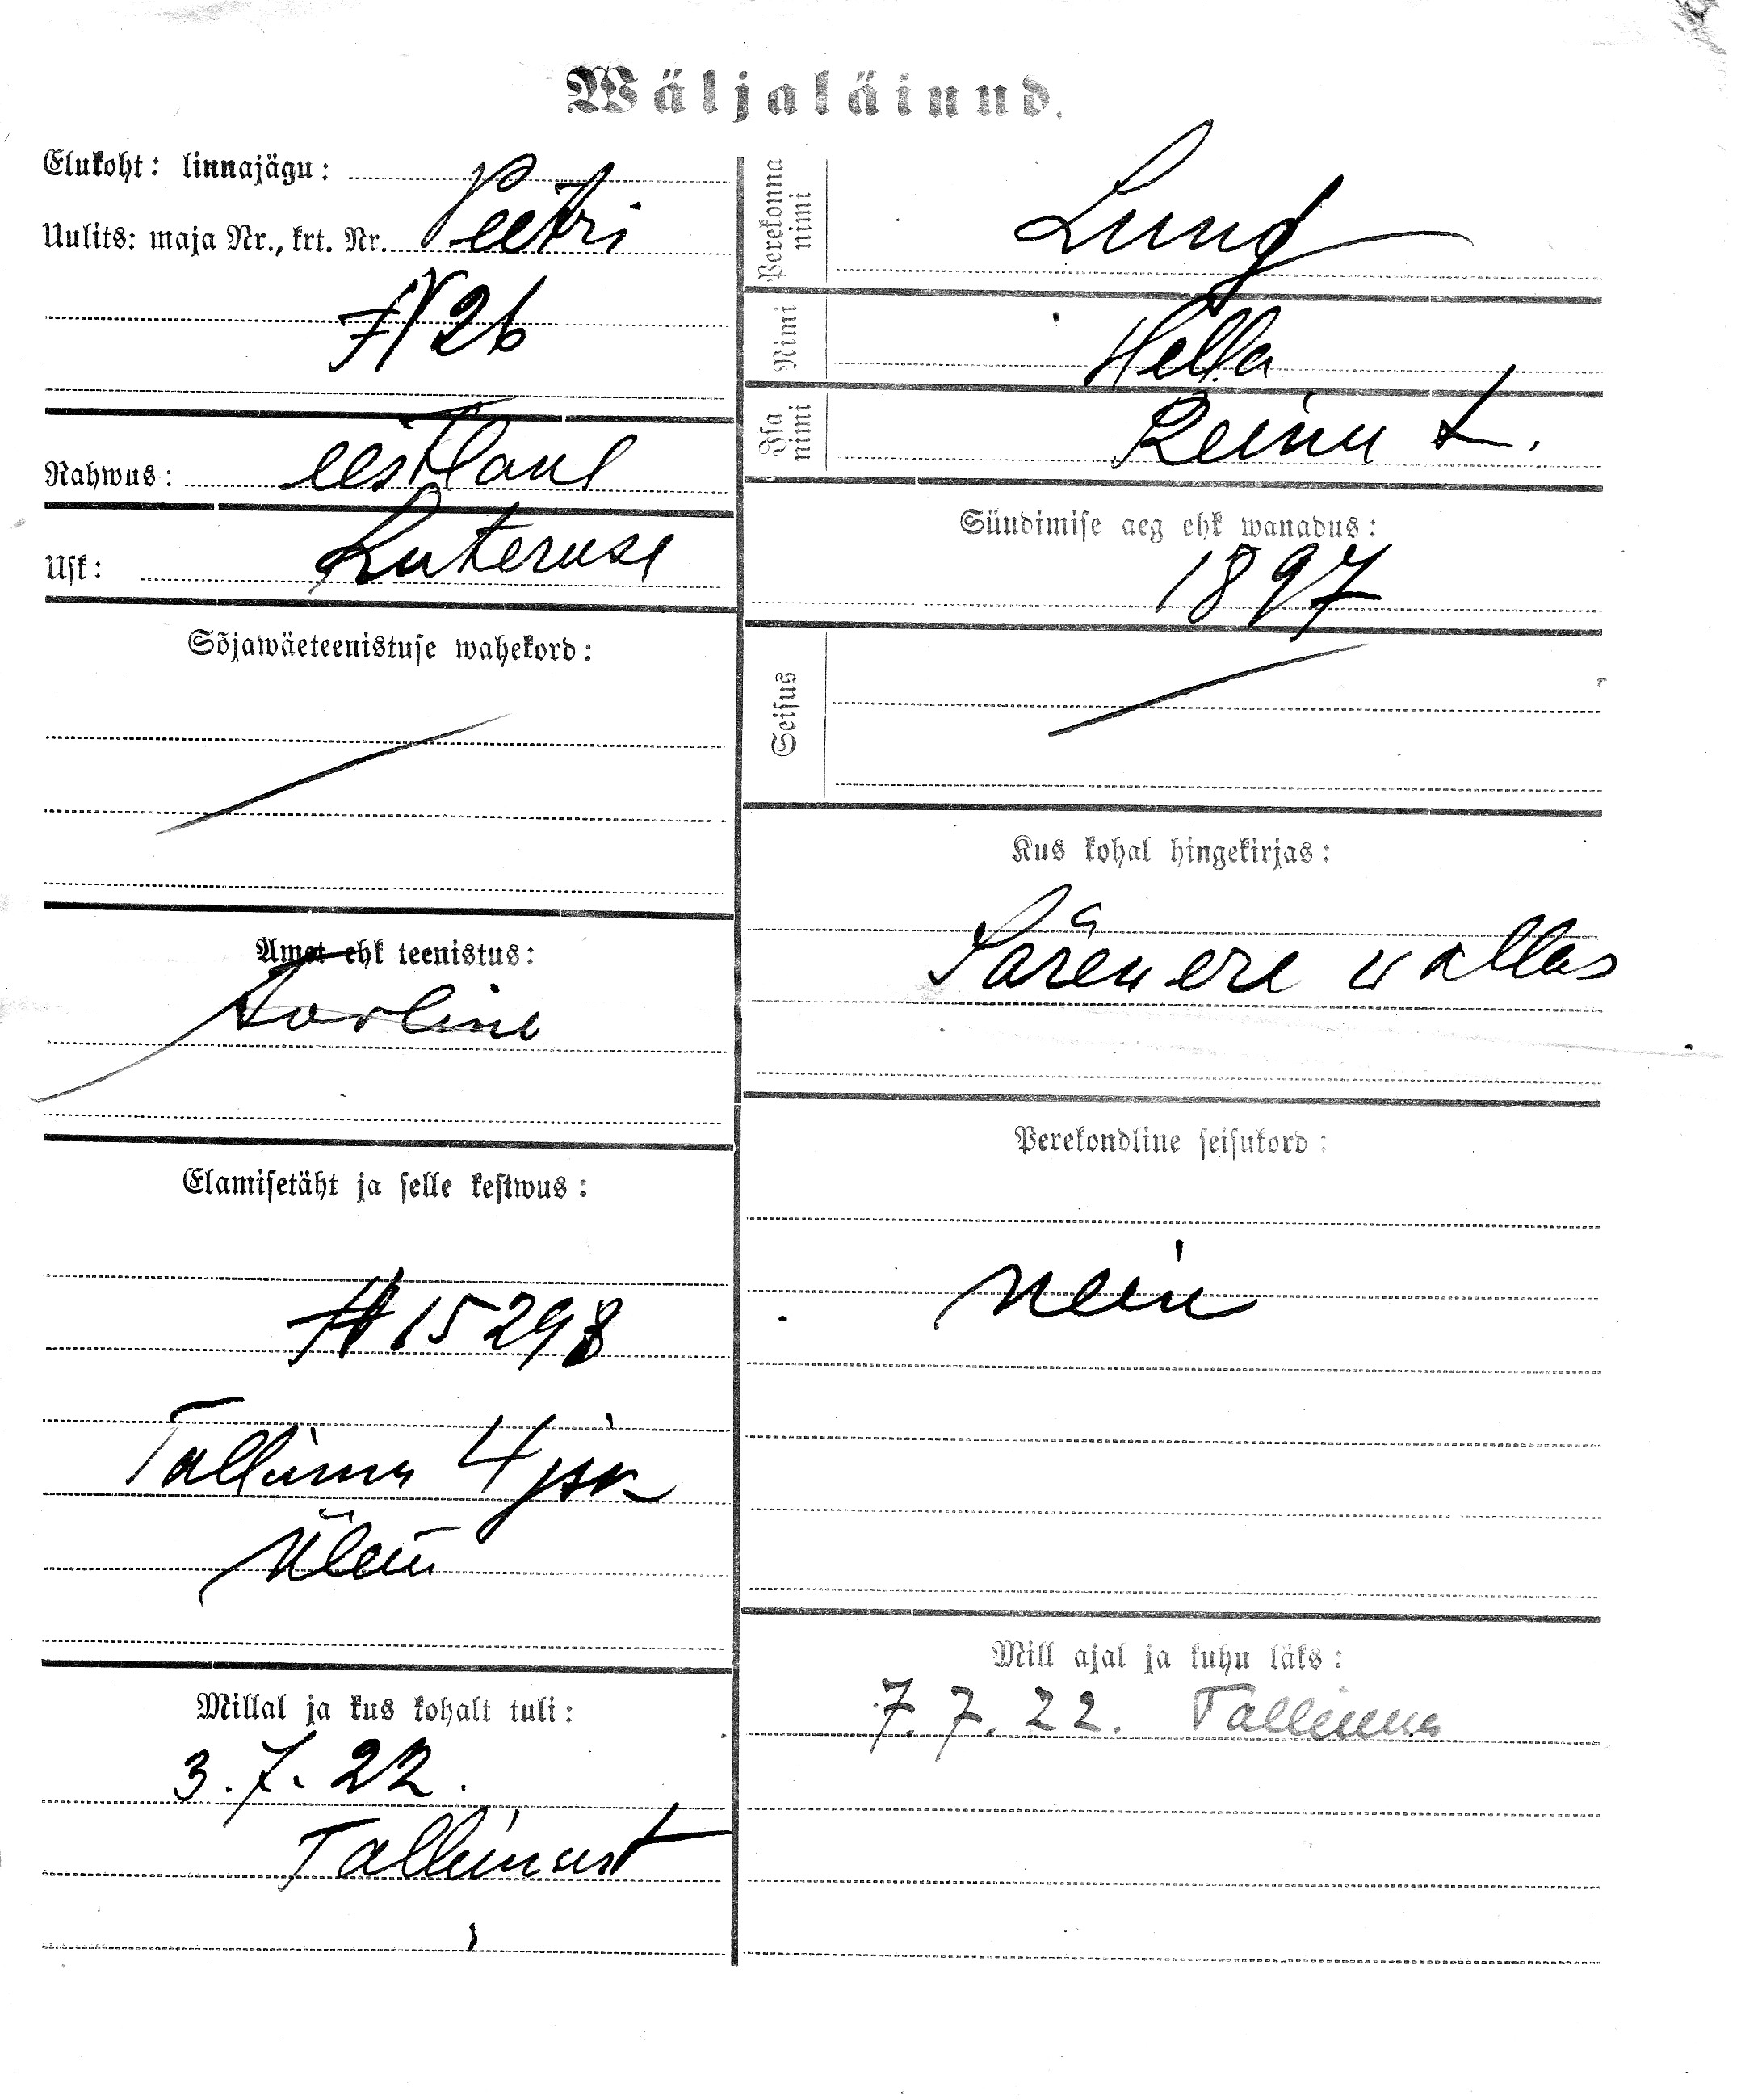 Wäljaläinud.
Elukoht: linnajägu:
Uulits: maja Nr., krt. Nr. Peetri
N 26
Rahwus: eestlane
Usk: Luteruse
Sõjawäeteenistuse wahekord:
Amet ehk teenistus:
Elamisetäht ja selle kestwus:
N 15298
Tallinna 4 jsk
Ülem
Millal ja kus kohalt tuli:
3.7.22.
Tallinnast
Perekonna nimi Lung
Nimi Hella
Isa nimi Reinu t.
Sündimise aeg ehk wanadus:
1897
Seisus
Kus kohal hingekirjas:
Särewere wallas
Perekondline seisukord:
Mill ajal ja kuhu läks:
7.7.22. Tallinna